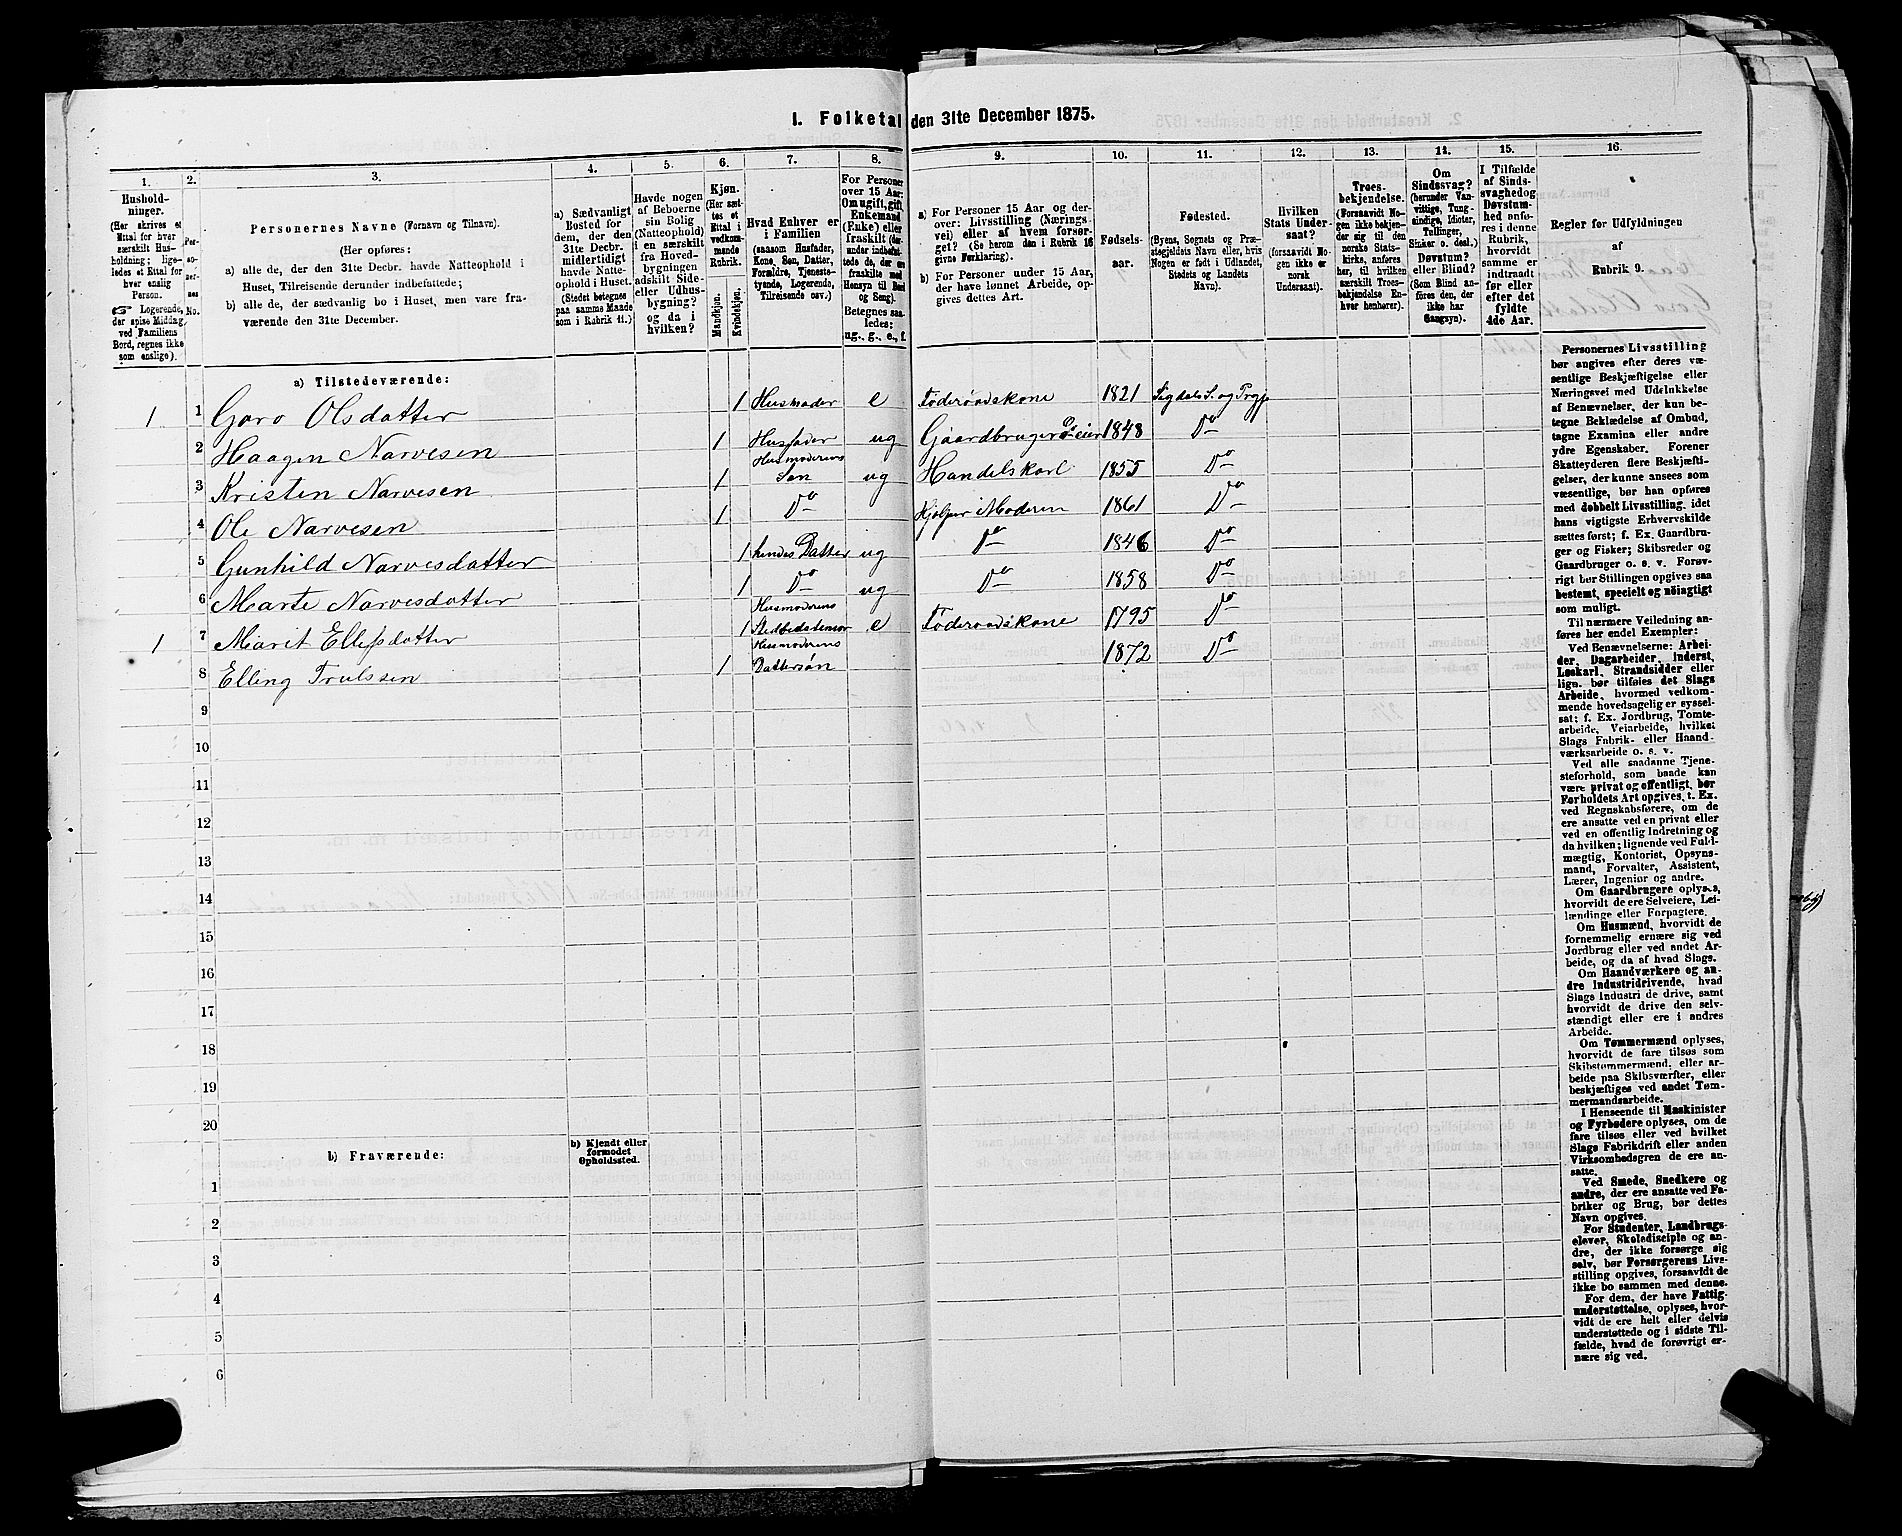 I. Folketal den 31te December 1875.
1.
2.
3.
4.
5.
6.
7.
8.
9.
10.
11.
12.
13.
14.
15.
16.
Hushold-
ninger.
(Her skrives et
Ettal for hver
særskilt Hus-
holdning; lige-
ledes et Ettal for
hver enslig
Person.
☞ Logerende,
der spise Middag
ved Familiens
Bord, regnes ikke
som enslige).
Per-
so-
ner-
nes
No.
Personernes Navne (Fornavn og Tilnavn).
(Her opføres:
a) alle de, der den 31te Decbr. havde Natteophold i
Huset, Tilreisende derunder indbefattede;
b) alle de, der sædvanlig bo i Huset, men vare fra-
værende den 31te December.
a) Sædvanligt
Bosted for
dem, der den
31te Decbr.
midlertidigt
havde Natte-
ophold i Huset.
(Stedet betegnes
paa samme Maade
som i Rubrik 11.)
Havde nogen
af Beboerne
sin Bolig
(Natteophold)
i en særskilt
fra Hoved-
bygningen
adskilt Side-
eller Udhus-
bygning?
og da i
hvilken?
Kjøn.
(Her sæt-
tes et
Ettal i
vedkom-
mende
Rubrik.
Mandkjøn.
Kvindekjøn.
Hvad Enhver er
i Familien
(saasom Husfader,
Kone, Søn, Datter,
Forældre, Tjeneste-
tyende, Logerende,
Tilreisende osv.)
For Personer
over 15 Aar:
Om ugift, gift,
Enkemand
(Enke) eller
fraskilt (der-
under indbefat-
tede de, der ere
fraskilte med
Hensyn til Bord
og Seng).
Betegnes saa-
ledes:
ug., g., e., f.
a) For Personer 15 Aar og der-
over: Livsstilling (Nærings-
vei) eller af hvem forsør-
get? (Se herom den i Rubrik 16
givne Forklaring).
b) For Personer under 15 Aar,
der have lønnet Arbeide, op-
gives dettes Art.
Fødsels-
aar.
Fødested.
(Byens, Sognets og Præ-
stegjeldets Navn eller, hvis
Nogen er født i Udlandet,
Stedets og Landets
Navn).
Hvilken
Stats Under-
saat?
(forsaavidt No-
gen ikke er
norsk
Undersaat).
Troes-
bekjendelse.
(Forsaavidt No-
gen ikke bekjen-
der sig til den
norske Stats-
kirke, anføres
her, til hvilken
særskilt Troes-
bekjendelse En-
hver henhører).
Om
Sindssvag?
(herunder Van-
vittige, Tung-
sindige, Idioter,
Tullinger,
Sinker o. desl.)
Døvstum?
eller Blind?
(Som Blind an-
føres den, der
ikke har
Gangsyn).
I Tilfælde
af Sinds-
svaghed og
Døvstum-
hed anfø-
res i denne
Rubrik,
hvorvidt
samme er
indtraadt
før eller
efter det
fyldte
4de Aar.
Regler for Udfyldningen
af
Rubrik 9.
a) Tilstedeværende:
1 1 Goro Olsdatter 1 Husmoder e Føderaadskone 1821 Sigdals S. og Prgj.
2 Haagen Narvesen 1 Husfader ug Gaardbruger og Seleier 1848 Do
3 Kristen Narvesen 1 Husmoderens Søn ug Handelskarl 1855 Do
4 Ole Narvesen 1 Do Hjælper Moderen 1861 Do
5 Gunhild Narvesdatter 1 hendes Datter ug Do 1846 Do
6 Marte Narvesdatter 1 Do ug Do 1858 Do
1 7 Marit Ellefsdatter 1 Husmoderens Stedbedstemor e Føderaadskone 1795 Do
8 Elling Trulssen 1 Husmoderens Dattersøn 1872 Do
9
10
11
12
13
14
15
16
17
18
19
20
b) Fraværende:
b) Kjendt eller
formodet
Opholdssted.
1
2
3
4
5
6
Personernes Livsstilling
bør angives efter deres væ-
sentlige Beskjæftigelse eller
Næringsvei med Udelukkelse
af Benævnelser, der kun be-
tegne Beklædelse af Ombud,
tagne Examina eller andre
ydre Egenskaber. Forener
Skatteyderen flere Beskjæfti-
gelser, der kunne ansees som
væsentlige, bør han opføres
med dobbelt Livsstilling, idet
hans vigtigste Erhvervskilde
sættes først; f. Ex. Gaardbru-
ger og Fisker; Skibsreder og
Gaardbruger o. s. v. Forøv-
rigt bør Stillingen opgives saa
bestemt, specielt og nøiagtigt
som muligt.
Til nærmere Veiledning an-
føres her endel Exempler:
Ved Benævnelserne: Arbei-
der, Dagarbeider, Inderst,
Løskarl, Strandsidder eller
lign. bør tilføies det Slags
Arbeide, hvormed vedkom-
mende hovedsagelig er syssel-
sat; f. Ex. Jordbrug, Tomte-
arbeide, Veiarbeide, hvilket
Slags Fabrik- eller Haand-
værksarbeide o. s. v.
Ved alle saadanne Tjene-
steforhold, som baade kan
være privat og offentligt, bør
Forholdets Art opgives, t. Ex.
ved Regnskabsførere, om de
ere ansatte ved en privat eller
ved en offentlig Indretning og
da hvilken; lignende ved Fuld-
mægtig, Kontorist, Opsyns-
mand, Forvalter, Assistent,
Lærer, Ingeniør og andre.
Om Gaardbrugere oplyses,
hvorvidt de ere Selveiere, Lei-
lændinge eller Forpagtere.
Om Husmænd, hvorvidt de
fornemmelig ernære sig ved
Jordbrug eller ved andet Ar-
beide, og da af hvad Slags.
Om Haandværkere og an-
dre Industridrivende, hvad
Slags Industri de drive, samt
hvorvidt de drive den selv-
stændigt eller ere i andres
Arbeide.
Om Tømmermænd oplyses,
hvorvidt de fare tilsøs som
Skibstømmermænd, eller ar-
beide paa Skibsværfter, eller
beskjæftiges ved andet Tøm-
mermandsarbeide.
I Henseende til Maskinister
og Fyrbødere oplyses, om de
fare tilsøs eller ved hvilket
Slags Fabrikdrift eller anden
Virksomhedsgren de ere an-
satte.
Ved Smede, Snedkere og
andre, der ere ansatte ved Fa-
briker og Brug, bør dettes
Navn opgives.
For Studenter, Landbrugs-
elever, Skoledisciple og an-
dre, der ikke forsørge sig
selv, bør Forsørgerens Livs-
stilling opgives, forsaavidt de
ikke bo sammen med denne.
For dem, der have Fattig-
understøttelse, oplyses, hvor-
vidt de ere helt eller delvis
understøttede og i sidste Til-
fælde, hvad de forøvrigt er-
nære sig ved.